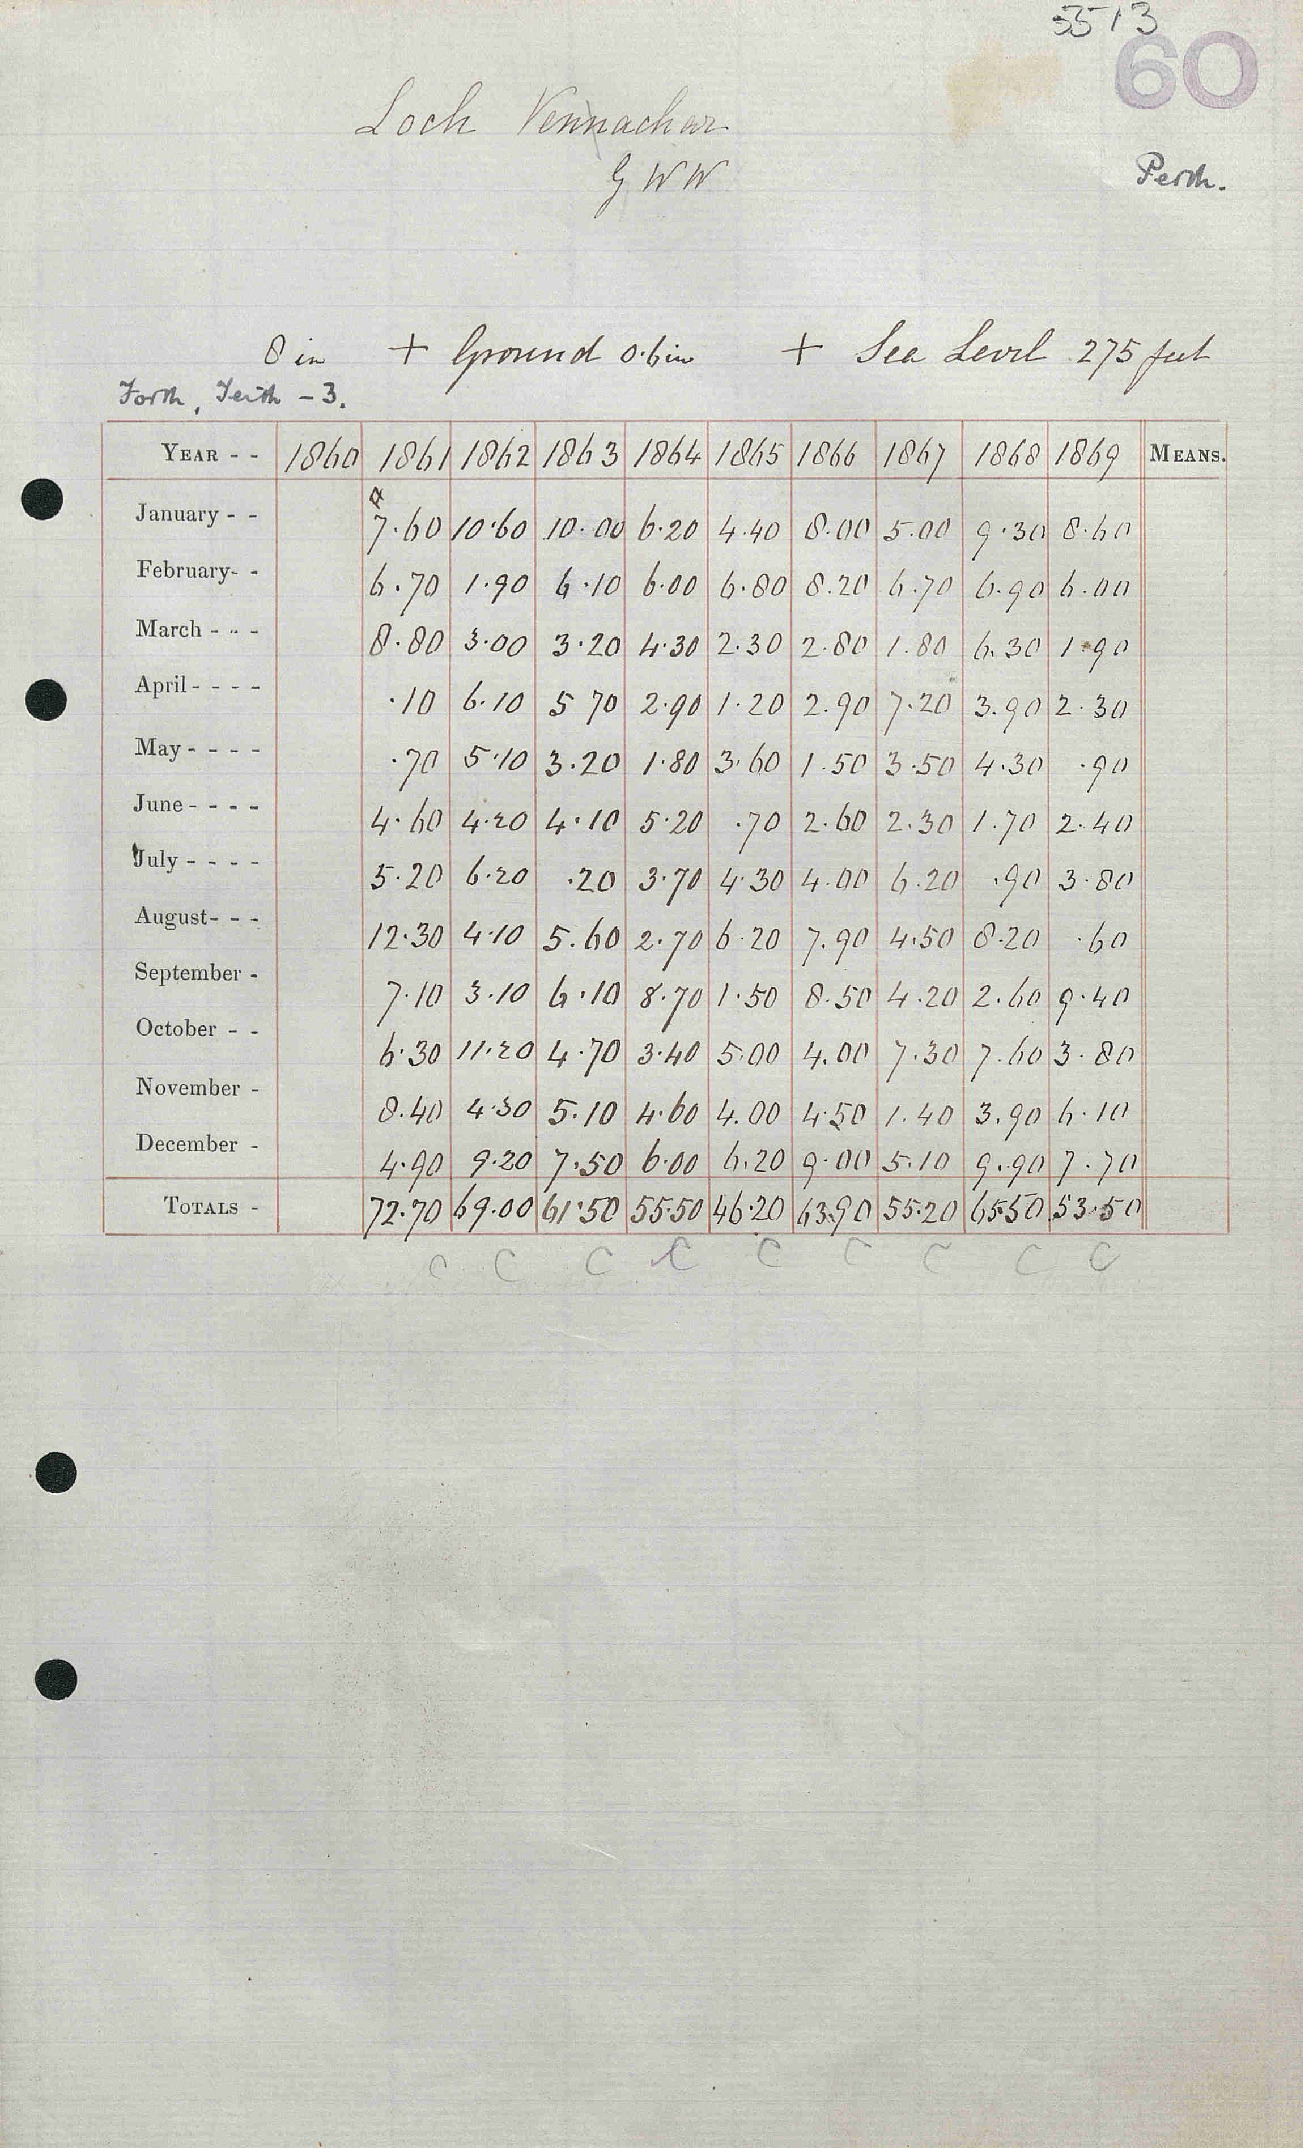 5513
60
Loch Vennachar
G W W
Perth.
8 in + Ground 0.6 in + Sea Level 275 feet
Forth, Teith - 3.
YEAR - - 1860 1861 1862 1863 1864 1865 1866 1867 1868 1869 MEANS.
January - - 7.60 10.60 10.00 6.20 4.40 8.00 5.00 9.30 8.60
February- - 6.70 1.90 6.10 6.00 6.80 8.20 6.70 6.90 6.00
March - - - 8.80 3.00 3.20 4.30 2.30 2.80 1.80 6.30 1.90
April - - - - .10 6.10 5 70 2.90 1.20 2.90 7.20 3.90 2.30
May - - - - .70 5.10 3.20 1.80 3.60 1.50 3.50 4.30 .90
June - - - - 4.60 4.20 4.10 5.20 .70 2.60 2.30 1.70 2.40
July - - - - 5.20 6.20 .20 3.70 4.30 4.00 6.20 .90 3.80
August- - - 12.30 4.10 5.60 2.70 6.20 7.90 4.50 8.20 .60
September - 7.10 3.10 6.10 8.70 1.50 8.50 4.20 2.60 9.40
October - - 6.30 11.20 4.70 3.40 5.00 4.00 7.30 7.60 3.80
November - 8.40 4.30 5.10 4.60 4.00 4.50 1.40 3.90 6.10
December - 4.90 9.20 7.50 6.00 6.20 9.00 5.10 9.90 7.70
TOTALS - 72.70 69.00 61.50 55.50 46.20 63.90 55.20 65.50 53.50
C C C C C C C C C